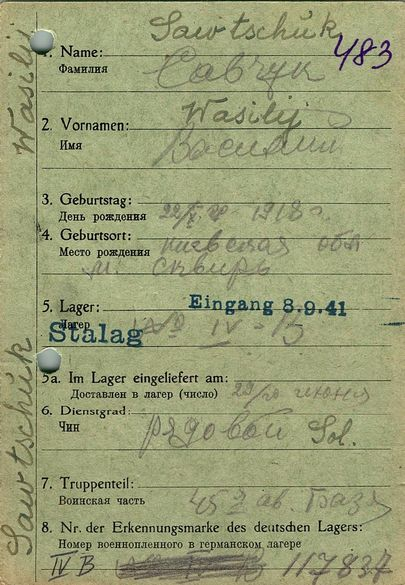 Sawtschuk
483
1. Name:
Савчук
Фамилия
Wasilij
2. Vornamen:
Василий
Имя
3. Geburtstag:
День рождения 1918 г.
4. Geburtsort:
Киевская обл
Место рождения
м. Сквирь
Eingang 8.9.41
5. Lager:
Лагерь IV-B
Stalag
5a. Im Lager eingeliefert am:
Доставлен в лагерь (число) 29/ июня
6. Dienstgrad:
Чин рядовой Sol.
7. Truppenteil:
Воинская часть 45 ав база
8. Nr. der Erkennungsmarke des deutschen Lagers:
Номер военнопленного в германском лагере
IV B 117837
Wasilij
Sawtschuk